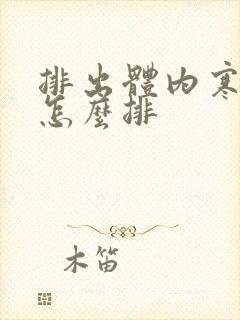 排出體內寒
怎麼排
木笛